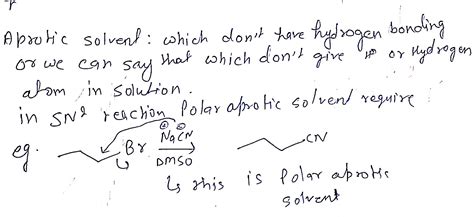 Aprotic solvent: which don't have hydrogen bonding
or we can say that which don't give H⊕ or Hydrogen
atom in solution.
in SN² reaction Polar aprotic solvent require
eg. Br
⊕ ⊖
NaCN
DMSO
CN
↳ this is Polar aprotic
solvent